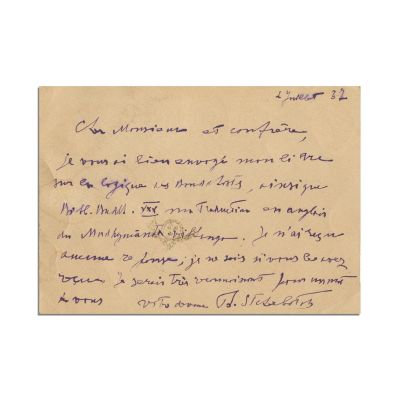 2 Juillet 37
Cher Monsieur et confrère,
je vous ai bien envoyé mon livre
sur la logique des Bouddhists, ainsi que
Bibl. Buddh. XXX ma traduction en anglais
du Madhyānta Vibhanga. Je n'ai reçu
aucune réponse, je ne sais si vous les avez
reçus. Je serais très reconnaissant pour
à vous votre dévoué Th. Stcherbatsky